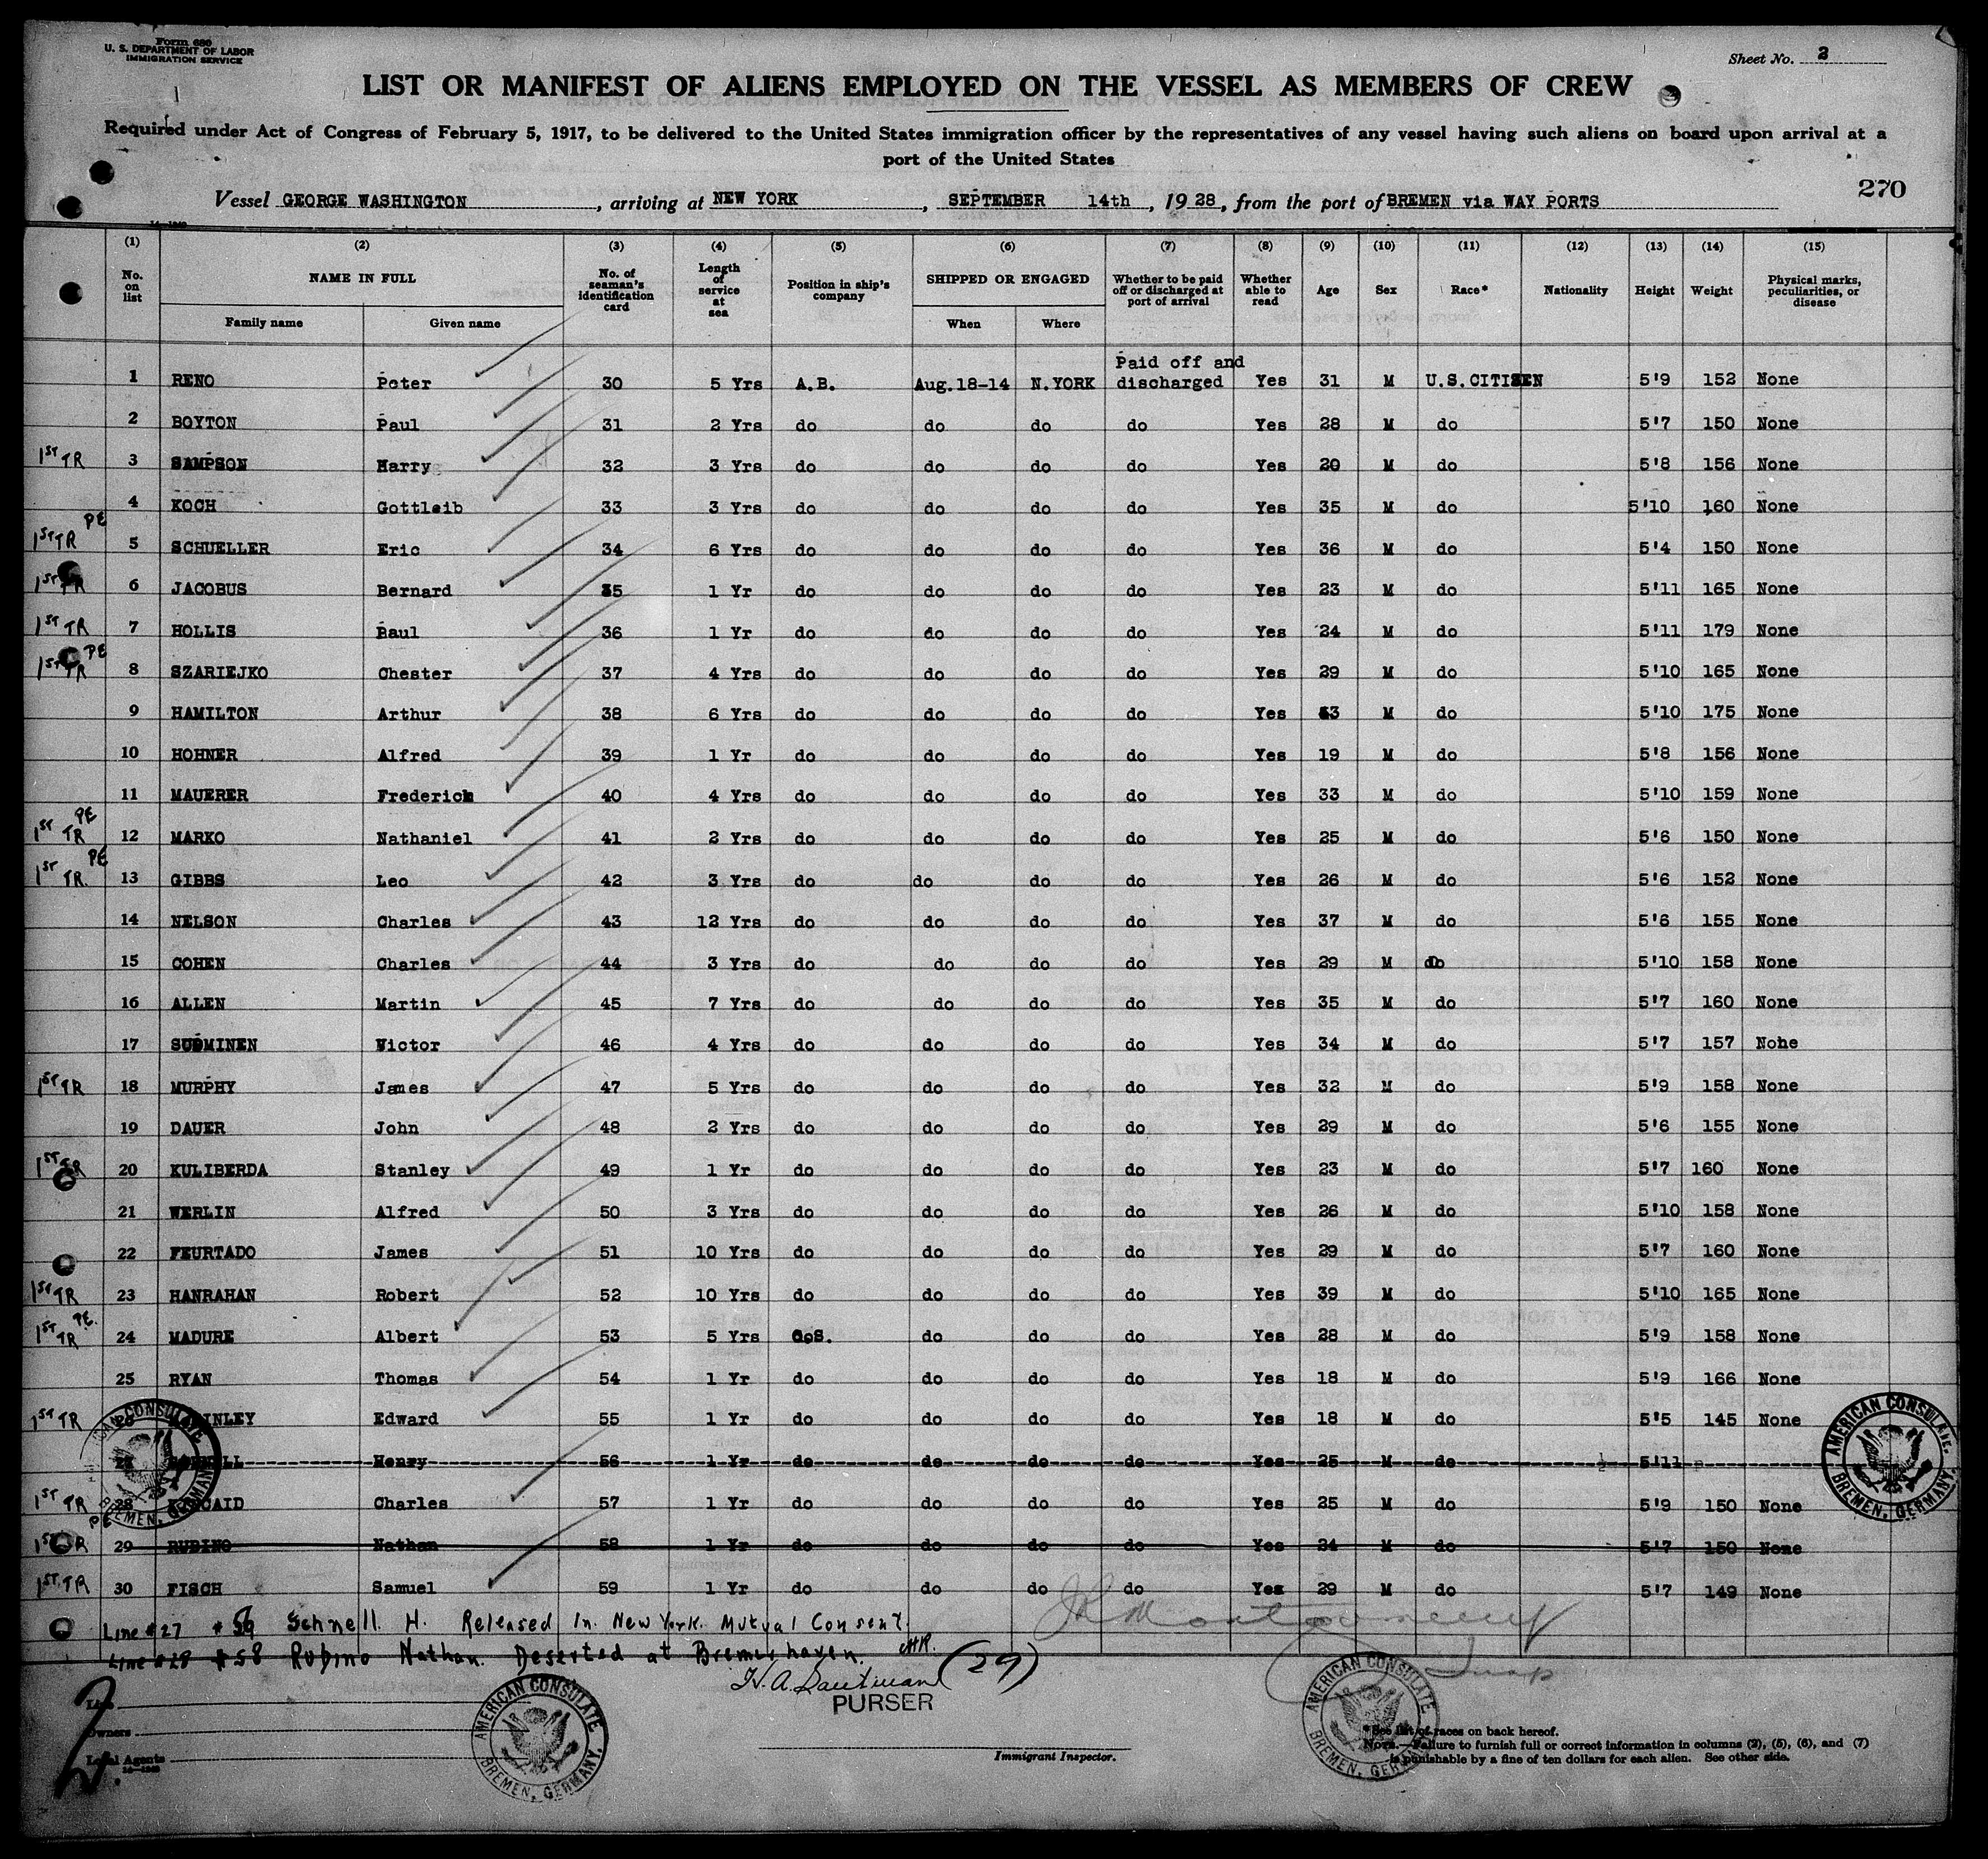 Form 680
U. S. DEPARTMENT OF LABOR
IMMIGRATION SERVICE
Sheet No. 2
LIST OR MANIFEST OF ALIENS EMPLOYED ON THE VESSEL AS MEMBERS OF CREW
Required under Act of Congress of February 5, 1917, to be delivered to the United States immigration officer by the representatives of any vessel having such aliens on board upon arrival at a
port of the United States
270
Vessel GEORGE WASHINGTON, arriving at NEW YORK, SEPTEMBER 14th, 1928, from the port of BREMEN via WAY PORTS
(1) (2) (3) (4) (5) (6) (7) (8) (9) (10) (11) (12) (13) (14) (15)
No. on list NAME IN FULL Family name Given name No. of seaman's identification card Length of service at sea Position in ship's company SHIPPED OR ENGAGED When Where Whether to be paid off or discharged at port of arrival Whether able to read Age Sex Race* Nationality Height Weight Physical marks, peculiarities, or disease
1 RENO Peter 30 5 Yrs A.B. Aug.18-14 N.YORK Paid off and discharged Yes 31 M U.S.CITIZEN 5'9 152 None
2 BOYTON Paul 31 2 Yrs do do do do Yes 28 M do 5'7 150 None
1ST TR 3 SAMPSON Harry 32 3 Yrs do do do do Yes 20 M do 5'8 156 None
4 KOCH Gottleib 33 3 Yrs do do do do Yes 35 M do 5'10 160 None
1ST TR PE 5 SCHUELLER Eric 34 6 Yrs do do do do Yes 36 M do 5'4 150 None
1ST TR 6 JACOBUS Bernard 35 1 Yr do do do do Yes 23 M do 5'11 165 None
1ST TR 7 HOLLIS Paul 36 1 Yr do do do do Yes 24 M do 5'11 179 None
1ST TR PE 8 SZARIEJKO Chester 37 4 Yrs do do do do Yes 29 M do 5'10 165 None
9 HAMILTON Arthur 38 6 Yrs do do do do Yes M do 5'10 175 None
10 HOHNER Alfred 39 1 Yr do do do do Yes 19 M do 5'8 156 None
11 MAUERER Frederick 40 4 Yrs do do do do Yes 33 M do 5'10 159 None
1ST TR PE 12 MARKO Nathaniel 41 2 Yrs do do do do Yes 25 M do 5'6 150 None
1ST TR. PE 13 GIBBS Leo 42 3 Yrs do do do do Yes 26 M do 5'6 152 None
14 NELSON Charles 43 12 Yrs do do do do Yes 37 M do 5'6 155 None
15 COHEN Charles 44 3 Yrs do do do do Yes 29 M do 5'10 158 None
16 ALLEN Martin 45 7 Yrs do do do do Yes 35 M do 5'7 160 None
17 SUOMINEN Victor 46 4 Yrs do do do do Yes 34 M do 5'7 157 None
1ST TR 18 MURPHY James 47 5 Yrs do do do do Yes 32 M do 5'9 158 None
19 DAUER John 48 2 Yrs do do do do Yes 29 M do 5'6 155 None
1ST TR 20 KULIBERDA Stanley 49 1 Yr do do do do Yes 23 M do 5'7 160 None
21 WERLIN Alfred 50 3 Yrs do do do do Yes 26 M do 5'10 158 None
22 FEURTADO James 51 10 Yrs do do do do Yes 29 M do 5'7 160 None
1ST TR 23 HANRAHAN Robert 52 10 Yrs do do do do Yes 39 M do 5'10 165 None
1ST TR PE. 24 MADURE Albert 53 5 Yrs O.S. do do do Yes 28 M do 5'9 158 None
25 RYAN Thomas 54 1 Yr do do do do Yes 18 M do 5'9 166 None
1ST TR 26 Edward 55 1 Yr do do do do Yes 18 M do 5'5 145 None
27 Henry 56 1 Yr do do do do Yes 25 M do 5'11
1ST TR PE 28 Charles 57 1 Yr do do do do Yes 25 M do 5'9 150 None
1ST TR 29 RUBINO Nathan 58 1 Yr do do do do Yes 24 M do 5'7 150 None
1ST. TR 30 FISCH Samuel 59 1 Yr do do do do Yes 29 M do 5'7 149 None
Line #27 #56 Schnell. H. Released In. New York. Mutual Consent.
Line #28 #58 Rubino Nathan. Deserted at Bremerhaven. (29)
PURSER
Line
Owners
Local Agents
Immigrant Inspector.
AMERICAN CONSULATE
BREMEN, GERMANY.
AMERICAN CONSULATE.
BREMEN, GERMANY.
AMERICAN CONSULATE
BREMEN, GERMANY.
AMERICAN CONSULATE
BREMEN, GERMANY.
*See list of races on back hereof.
NOTE.—Failure to furnish full or correct information in columns (2), (5), (6), and (7)
is punishable by a fine of ten dollars for each alien. See other side.